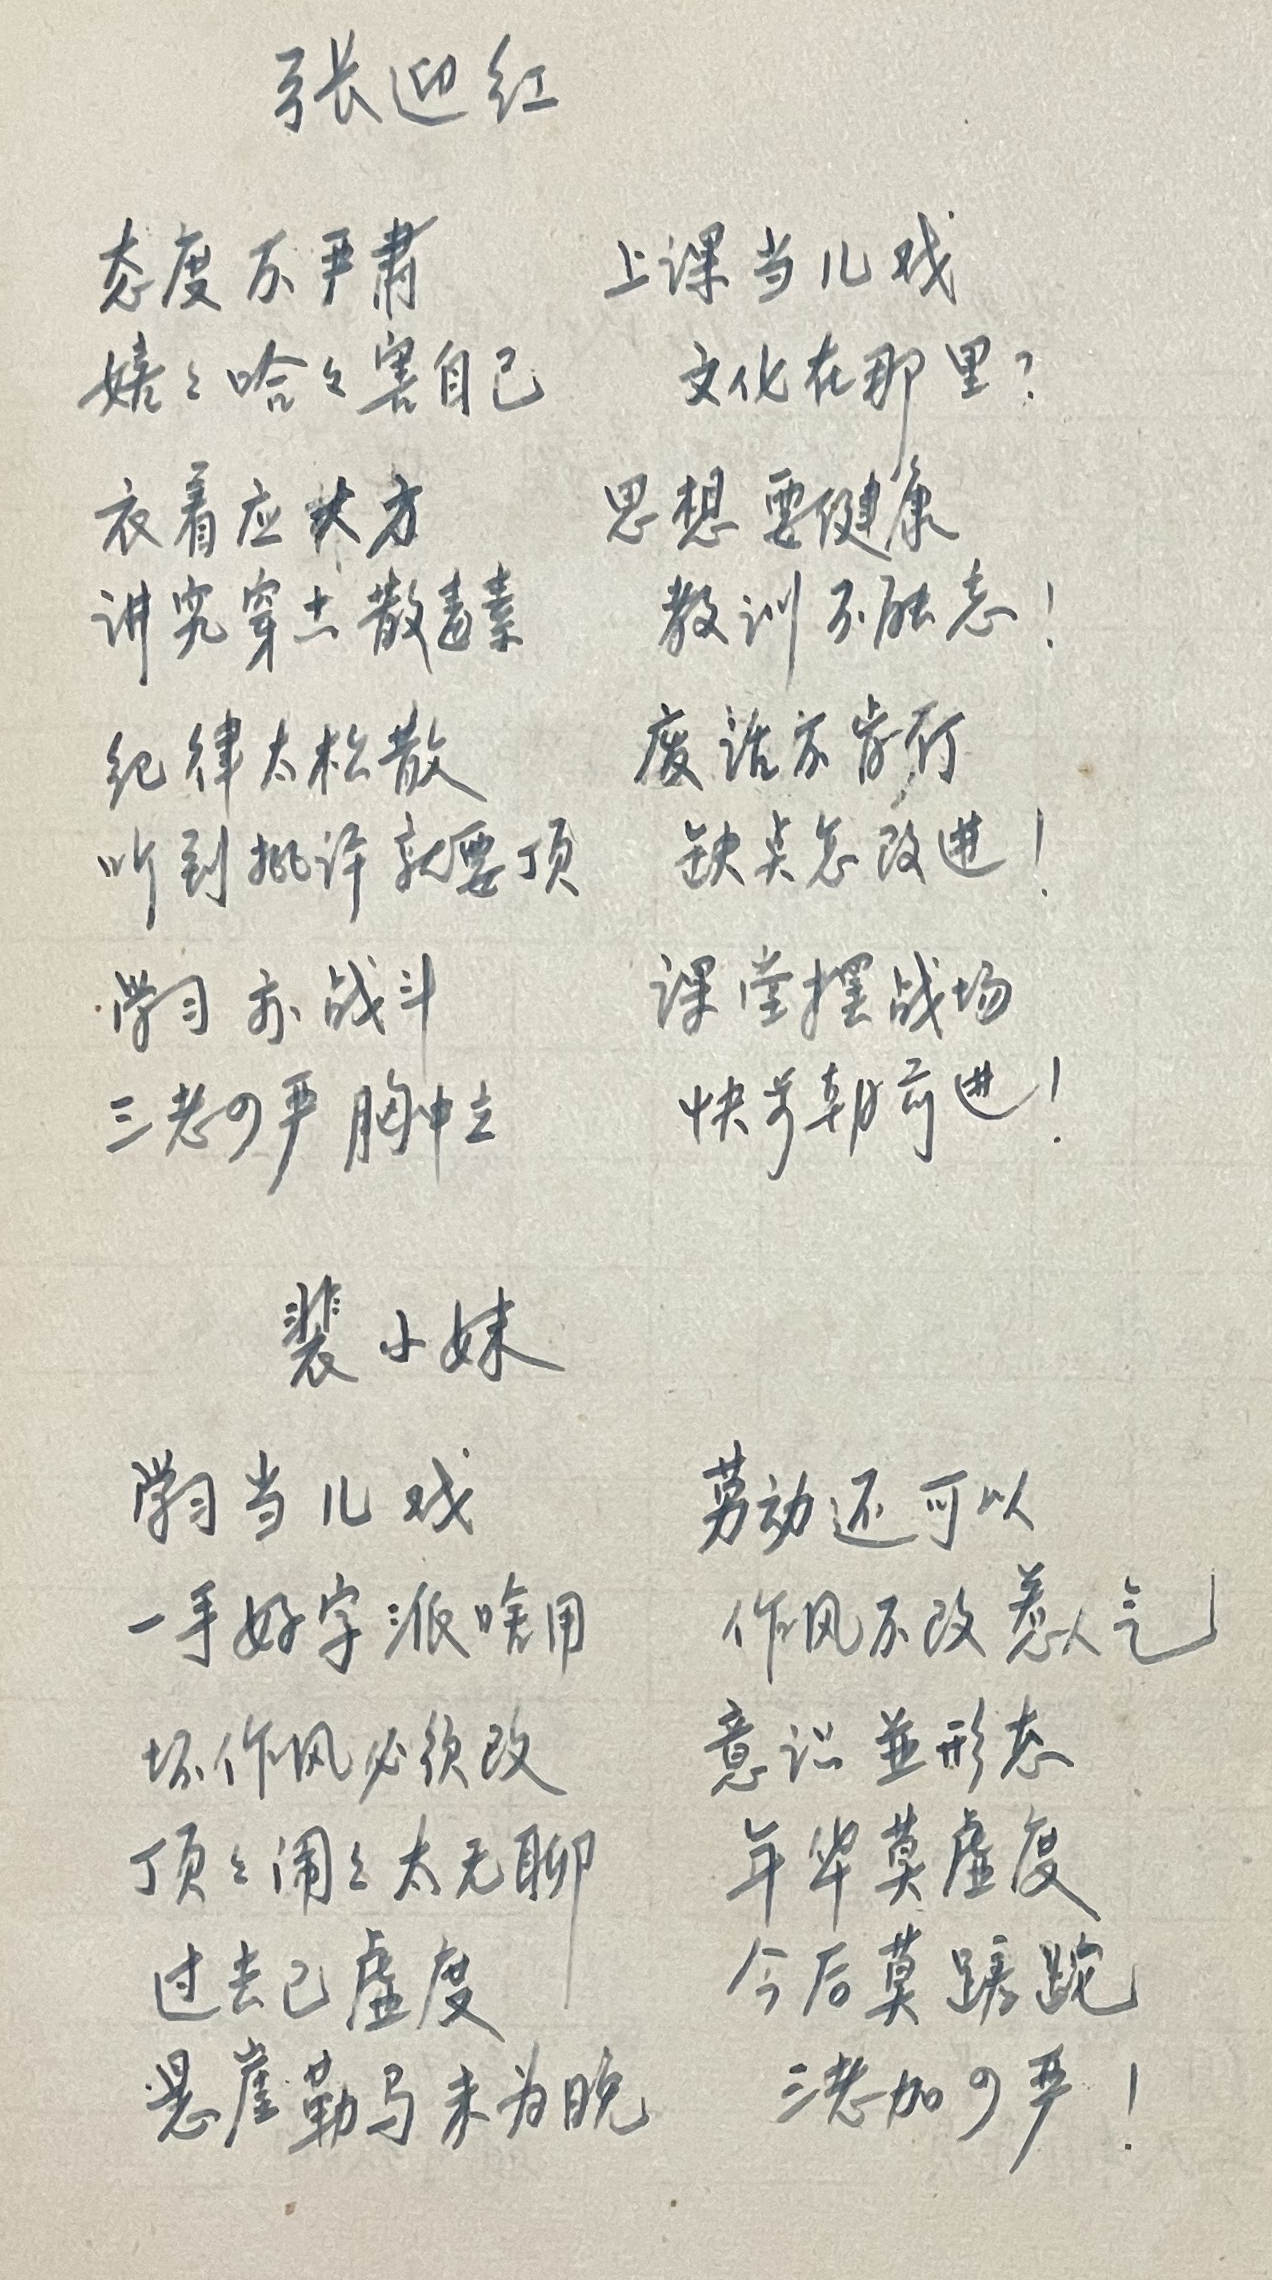 张迎红
态度不严肃 上课当儿戏
嬉々哈々害自己 文化在那里?
衣着应大方 思想要健康
讲究穿士散毒素 教训不能忘!
纪律太松散 废话亦常有
听到批评就要顶 缺点怎改进!
学习亦战斗 课堂摆战场
三老四严胸中立 快步朝前进!
裴小妹
学习当儿戏 劳动还可以
一手好字派啥用 作风不改惹人气
坏作风必须改 意识并形态
顶々闹々太无聊 年华莫虚度
过去已虚度 今后莫蹉跎
悬崖勒马未为晚 三老加四严!